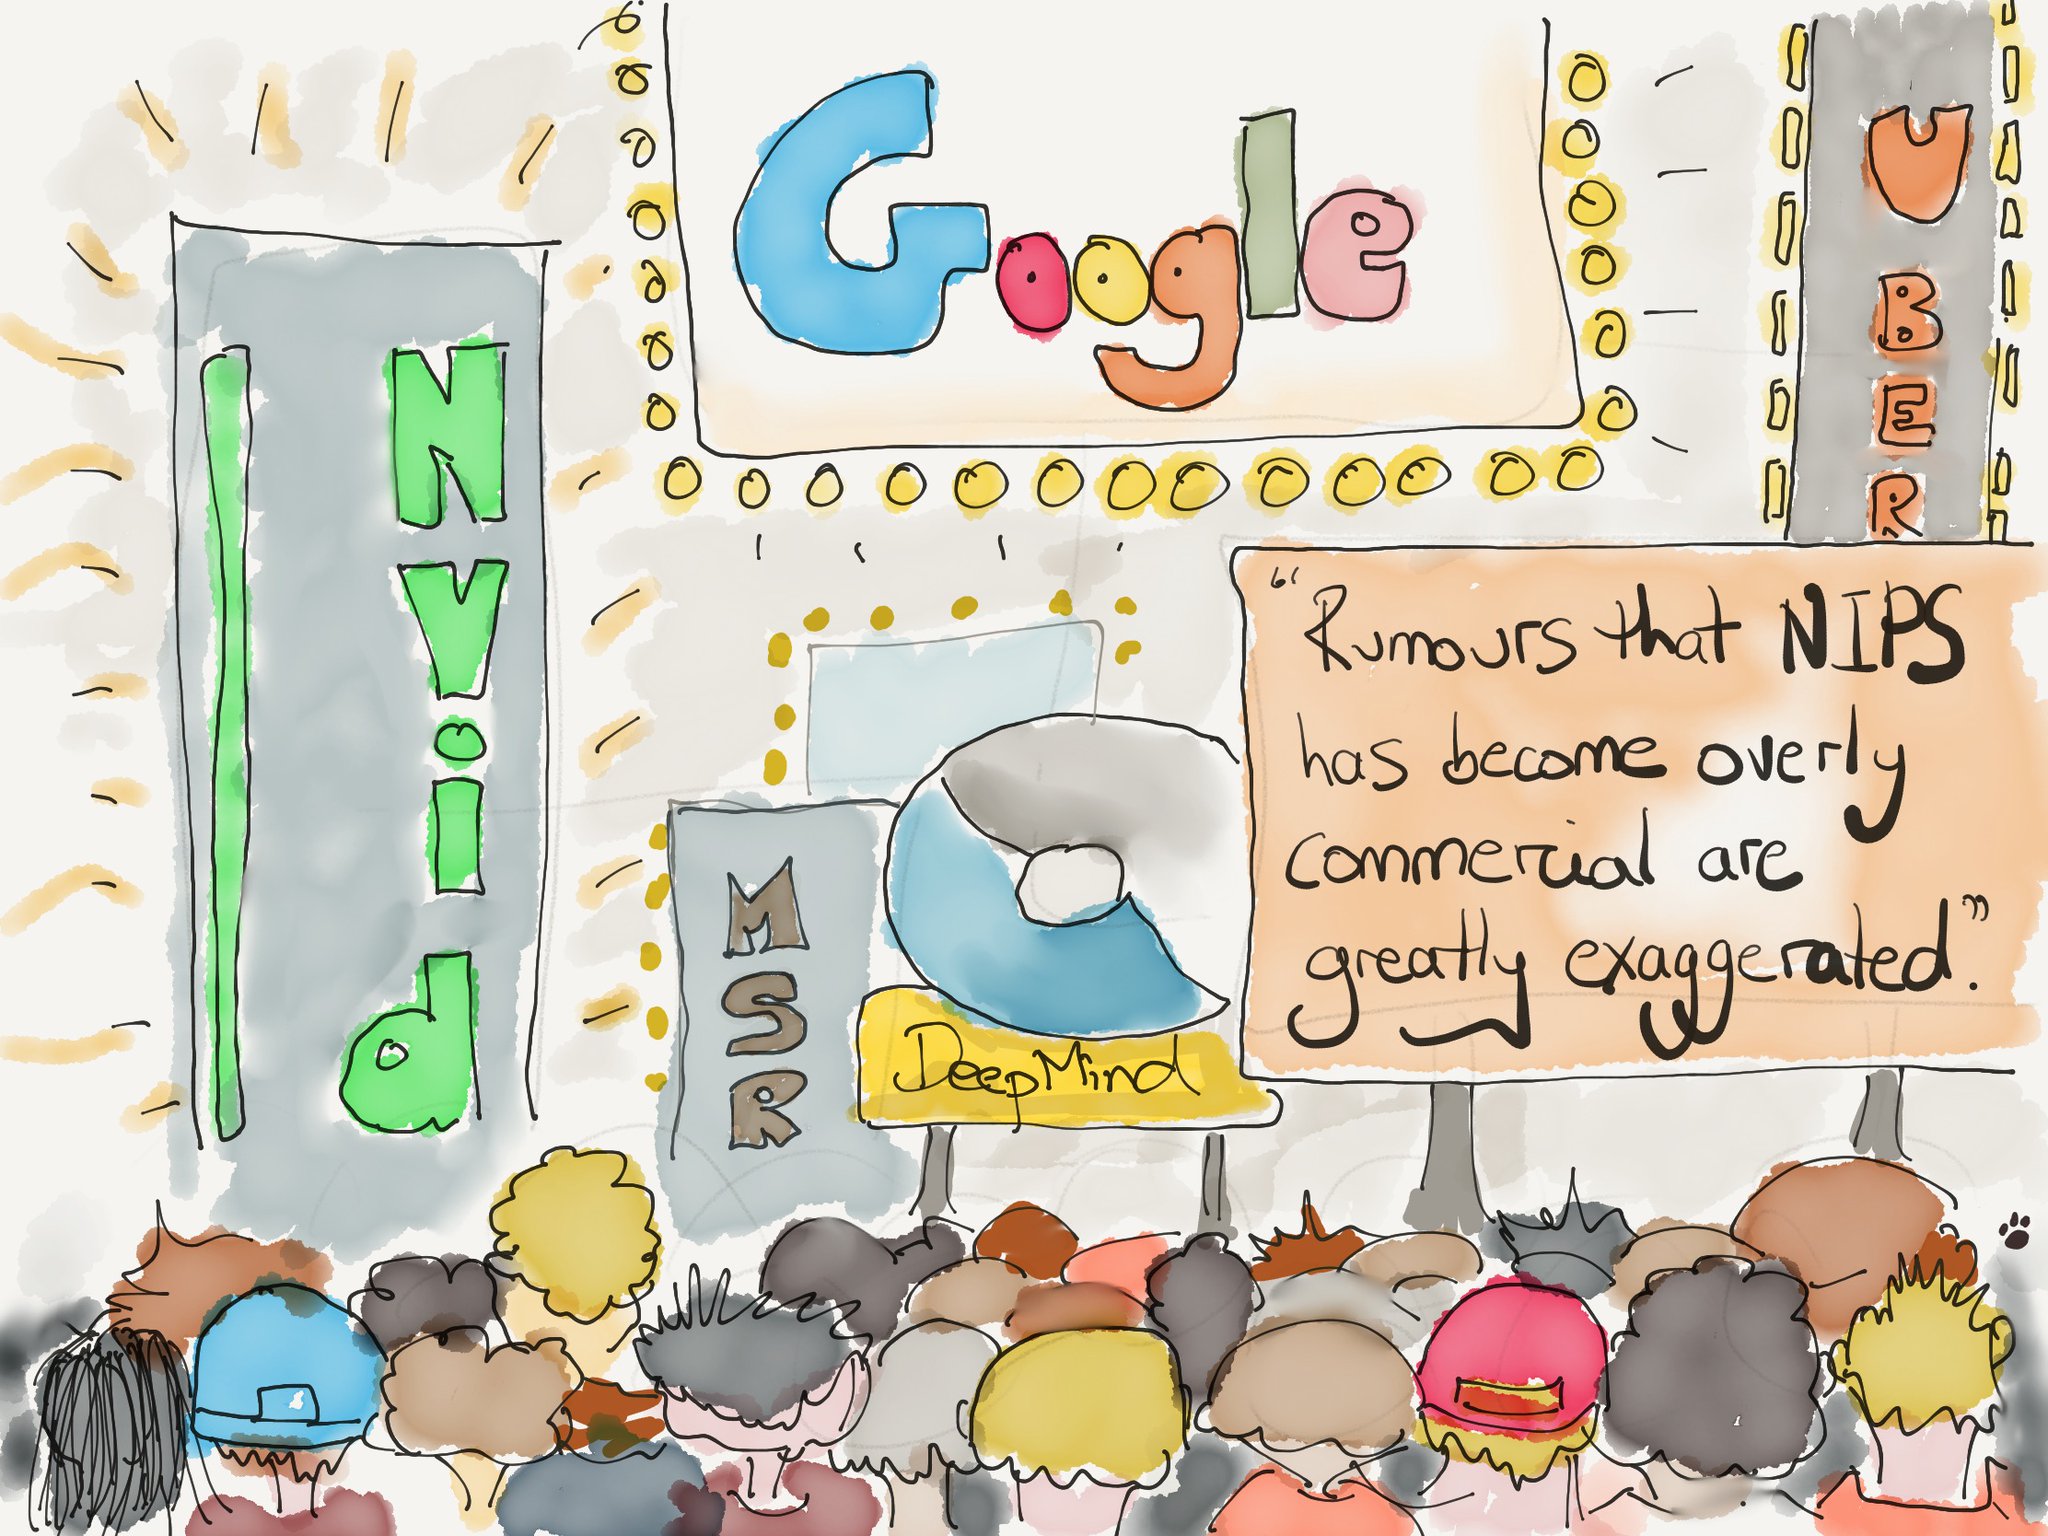 Google
UBER
Nvid
MSR
DeepMind
"Rumours that NIPS
has become overly
commercial are
greatly exaggerated."